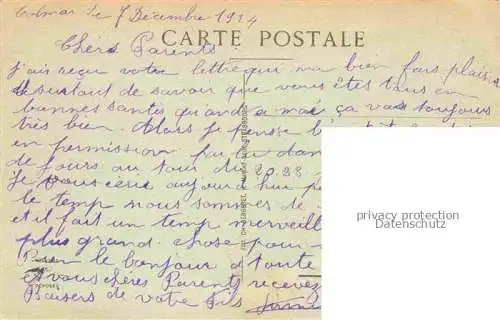 Colmar le 7 Décembre 1924
CARTE POSTALE
Chérs Parents
J'ais reçu votre lettre qui ma bien fais plaisir
surtout de savoir que vous êtes tous en
bonnes santés quand a moi ça vas toujours
très bien. Alors je pense
en permission dans
de jours au tour du 20.28
Je vous aujourd'hui
le temp nous sommes de
et il fait un temp merveill
plus grand chose pour
le bonjour a toute
et vous chéres Parents recevez
Baisers de votre fils
privacy protection
Datenschutz